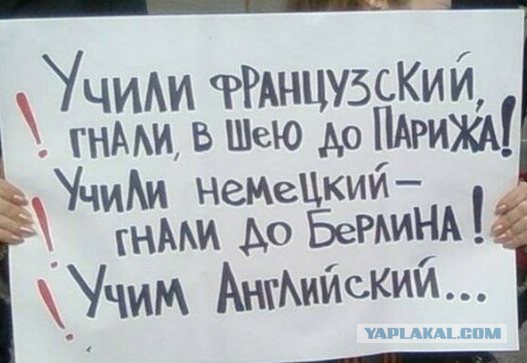 Учили французский,
! гнали, в шею до Парижа!
Учили немецкий –
! гнали до Берлина!
! Учим Английский...
YAPLAKAL.COM